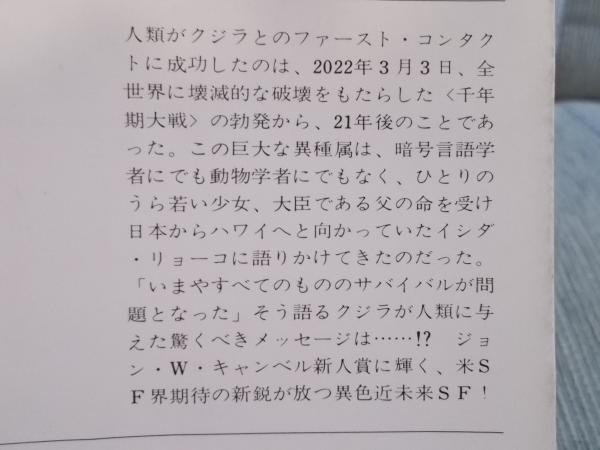 人類がクジラとのファースト・コンタク
トに成功したのは、2022年3月3日、全
世界に壊滅的な破壊をもたらした〈千年
期大戦〉の勃発から、21年後のことであ
った。この巨大な異種属は、暗号言語学
者にでも動物学者にでもなく、ひとりの
うら若い少女、大臣である父の命を受け
日本からハワイへと向かっていたイシダ
・リョーコに語りかけてきたのだった。
「いまやすべてのもののサバイバルが問
題となった」そう語るクジラが人類に与
えた驚くべきメッセージは……!?　ジョ
ン・W・キャンベル新人賞に輝く、米S
F界期待の新鋭が放つ異色近未来SF！